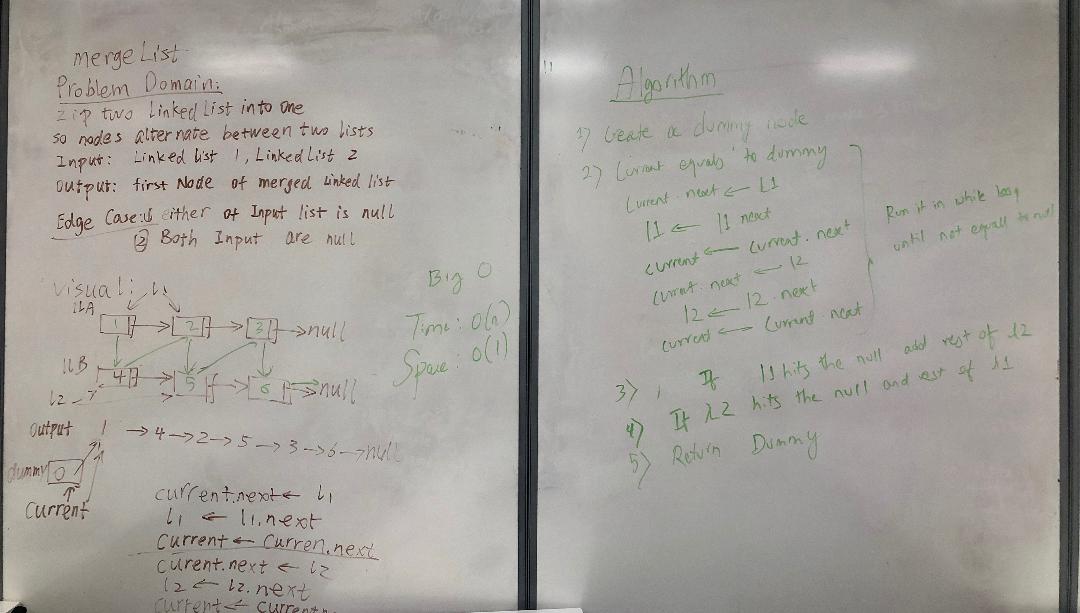 mergeList
Problem Domain:
zip two Linked List into one
so nodes alternate between two lists
Input: Linked List 1, Linked List 2
Output: first Node of merged Linked list
Edge Case: ① either of Input list is null
② Both Input are null
Visual: l1
llA
1 → 2 → 3 → null
llB
4 → 5 → 6 → null
l2
Output 1 → 4 → 2 → 5 → 3 → 6 → null
dummy 0
Current
current.next ← l1
l1 ← l1.next
Current ← Curren.next
curent.next ← l2
l2 ← l2.next
current ← current
Big O
Time: O(n)
Space: O(1)
Algorithm
1) Create a dummy node
2) Current equals to dummy
Current.next ← L1
l1 ← l1 next
current ← current.next
current.next ← l2
l2 ← l2.next
current ← Current.next
Run it in while loop
until not equall to null
3) If l1 hits the null add rest of l2
4) If l2 hits the null and rest of l1
5) Return Dummy